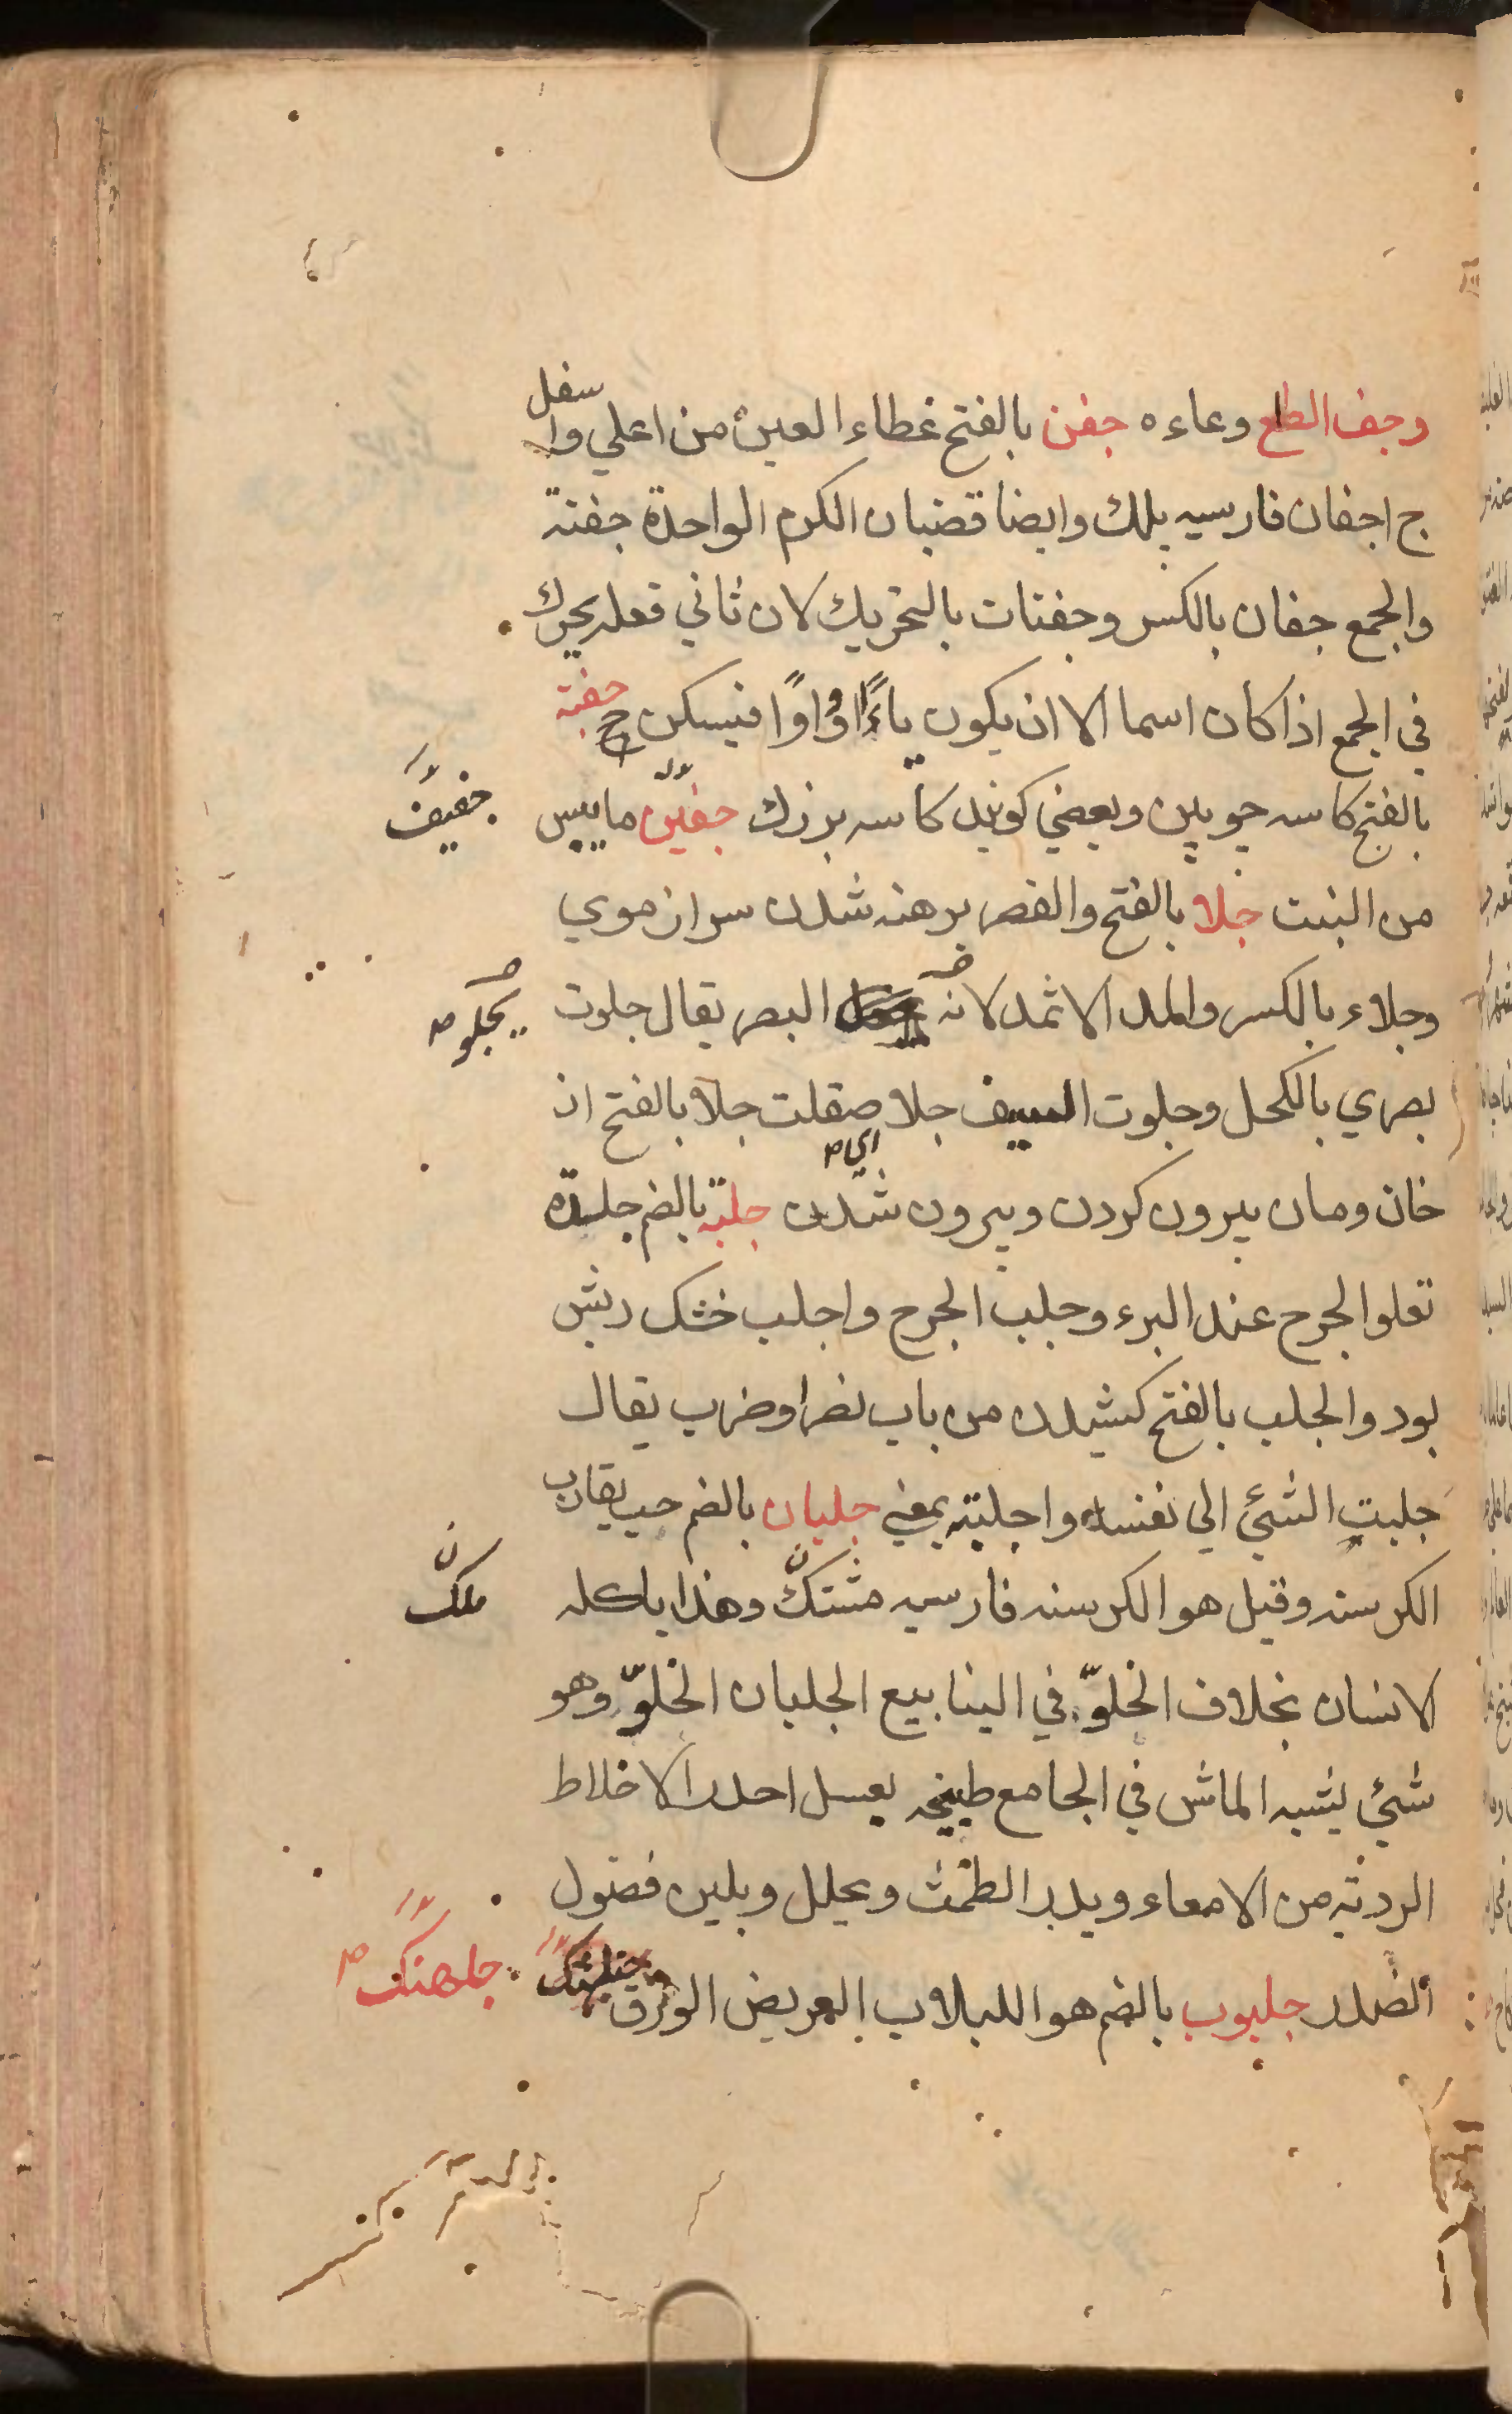 وجف الطلع وعاءه جفن بالفتح غطاء العين من اعلي واسفل
ج اجفان فارسيه پلك وايضا قضبان الكرم الواحدة جفنة
والجمع جفان بالكسر وجفنات بالتحريك لان ثاني فعله يحرك
في الجمع اذا كان اسما الا ان يكون ياءً او واوًا فيسكن ح جفنة
بالفتح كاسه چوبين وبعضي كويند كاسه بزرك جفين ماييبس
جفيف
من النبت جلا بالفتح والقصر برهنه شدن سر از موي
وجلاء بالكسر والمد الاثمد لانه البصر يقال جلوت
يجلو صح
بصري بالكحل وجلوت السيف جلا صقلت جلا بالفتح از
خان ومان بيرون كردن وبيرون شدن جلبة بالضم جليدة
تعلو الجرح عند البرء وجلب الجرح واجلب خشك ريش
بود والجلب بالفتح كشيدن من باب نصر اوضرب يقال
جلبت الشئ الي نفسك واجلبته بمعني جلبان بالضم حب يقارب
الكرسنه وقيل هو الكرسنه فارسيه مشتك وهذا ياكله
ملك
الانسان بخلاف الخلوّ في الينابيع الجلبان الخلوّ وهو
شئ يشبه الماش في الجامع طبيخه بعسل احدر الاخلاط
الرديه من الامعاء ويدر الطمث ويحلل ويلين فضول
الصدر جلبوب بالضم هو اللبلاب العريض الورق
جلهنك صح